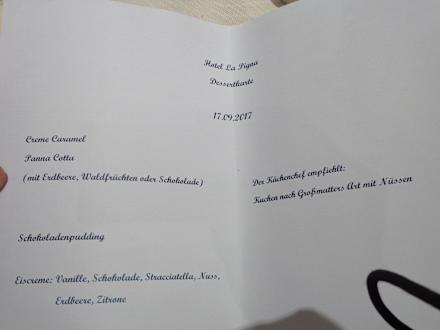 Hotel La Pigna
Dessertkarte
17.09.2017
Creme Caramel
Panna Cotta
(mit Erdbeere, Waldfrüchten oder Schokolade)
Der Küchenchef empfiehlt:
Kuchen nach Großmutters Art mit Nüssen
Schokoladenpudding
Eiscreme: Vanille, Schokolade, Stracciatella, Nuss,
Erdbeere, Zitrone